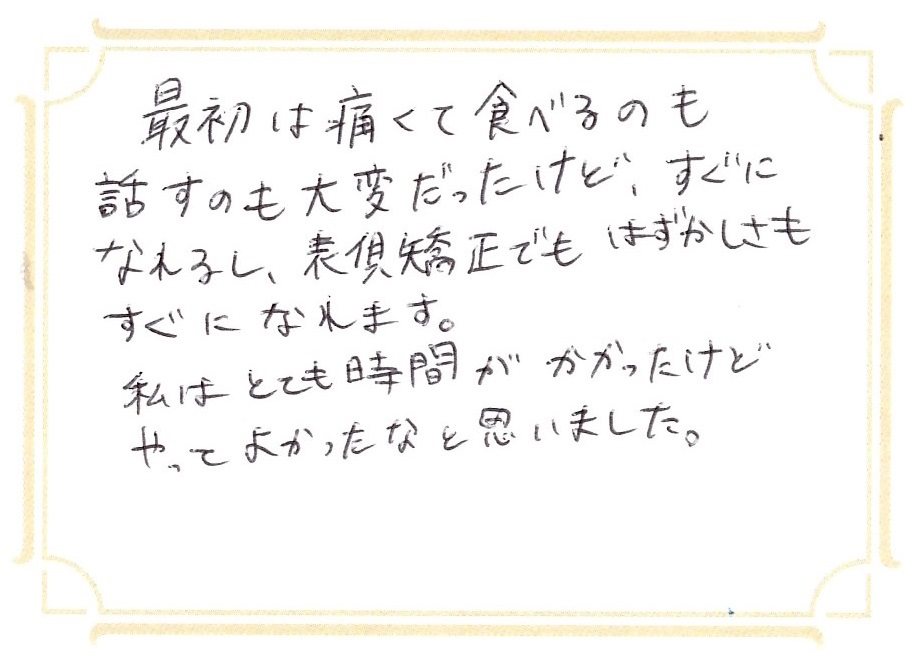 最初は痛くて食べるのも
話すのも大変だったけど、すぐに
なれるし、表側矯正でもはずかしさも
すぐになれます。
私はとても時間がかかったけど
やってよかったなと思いました。